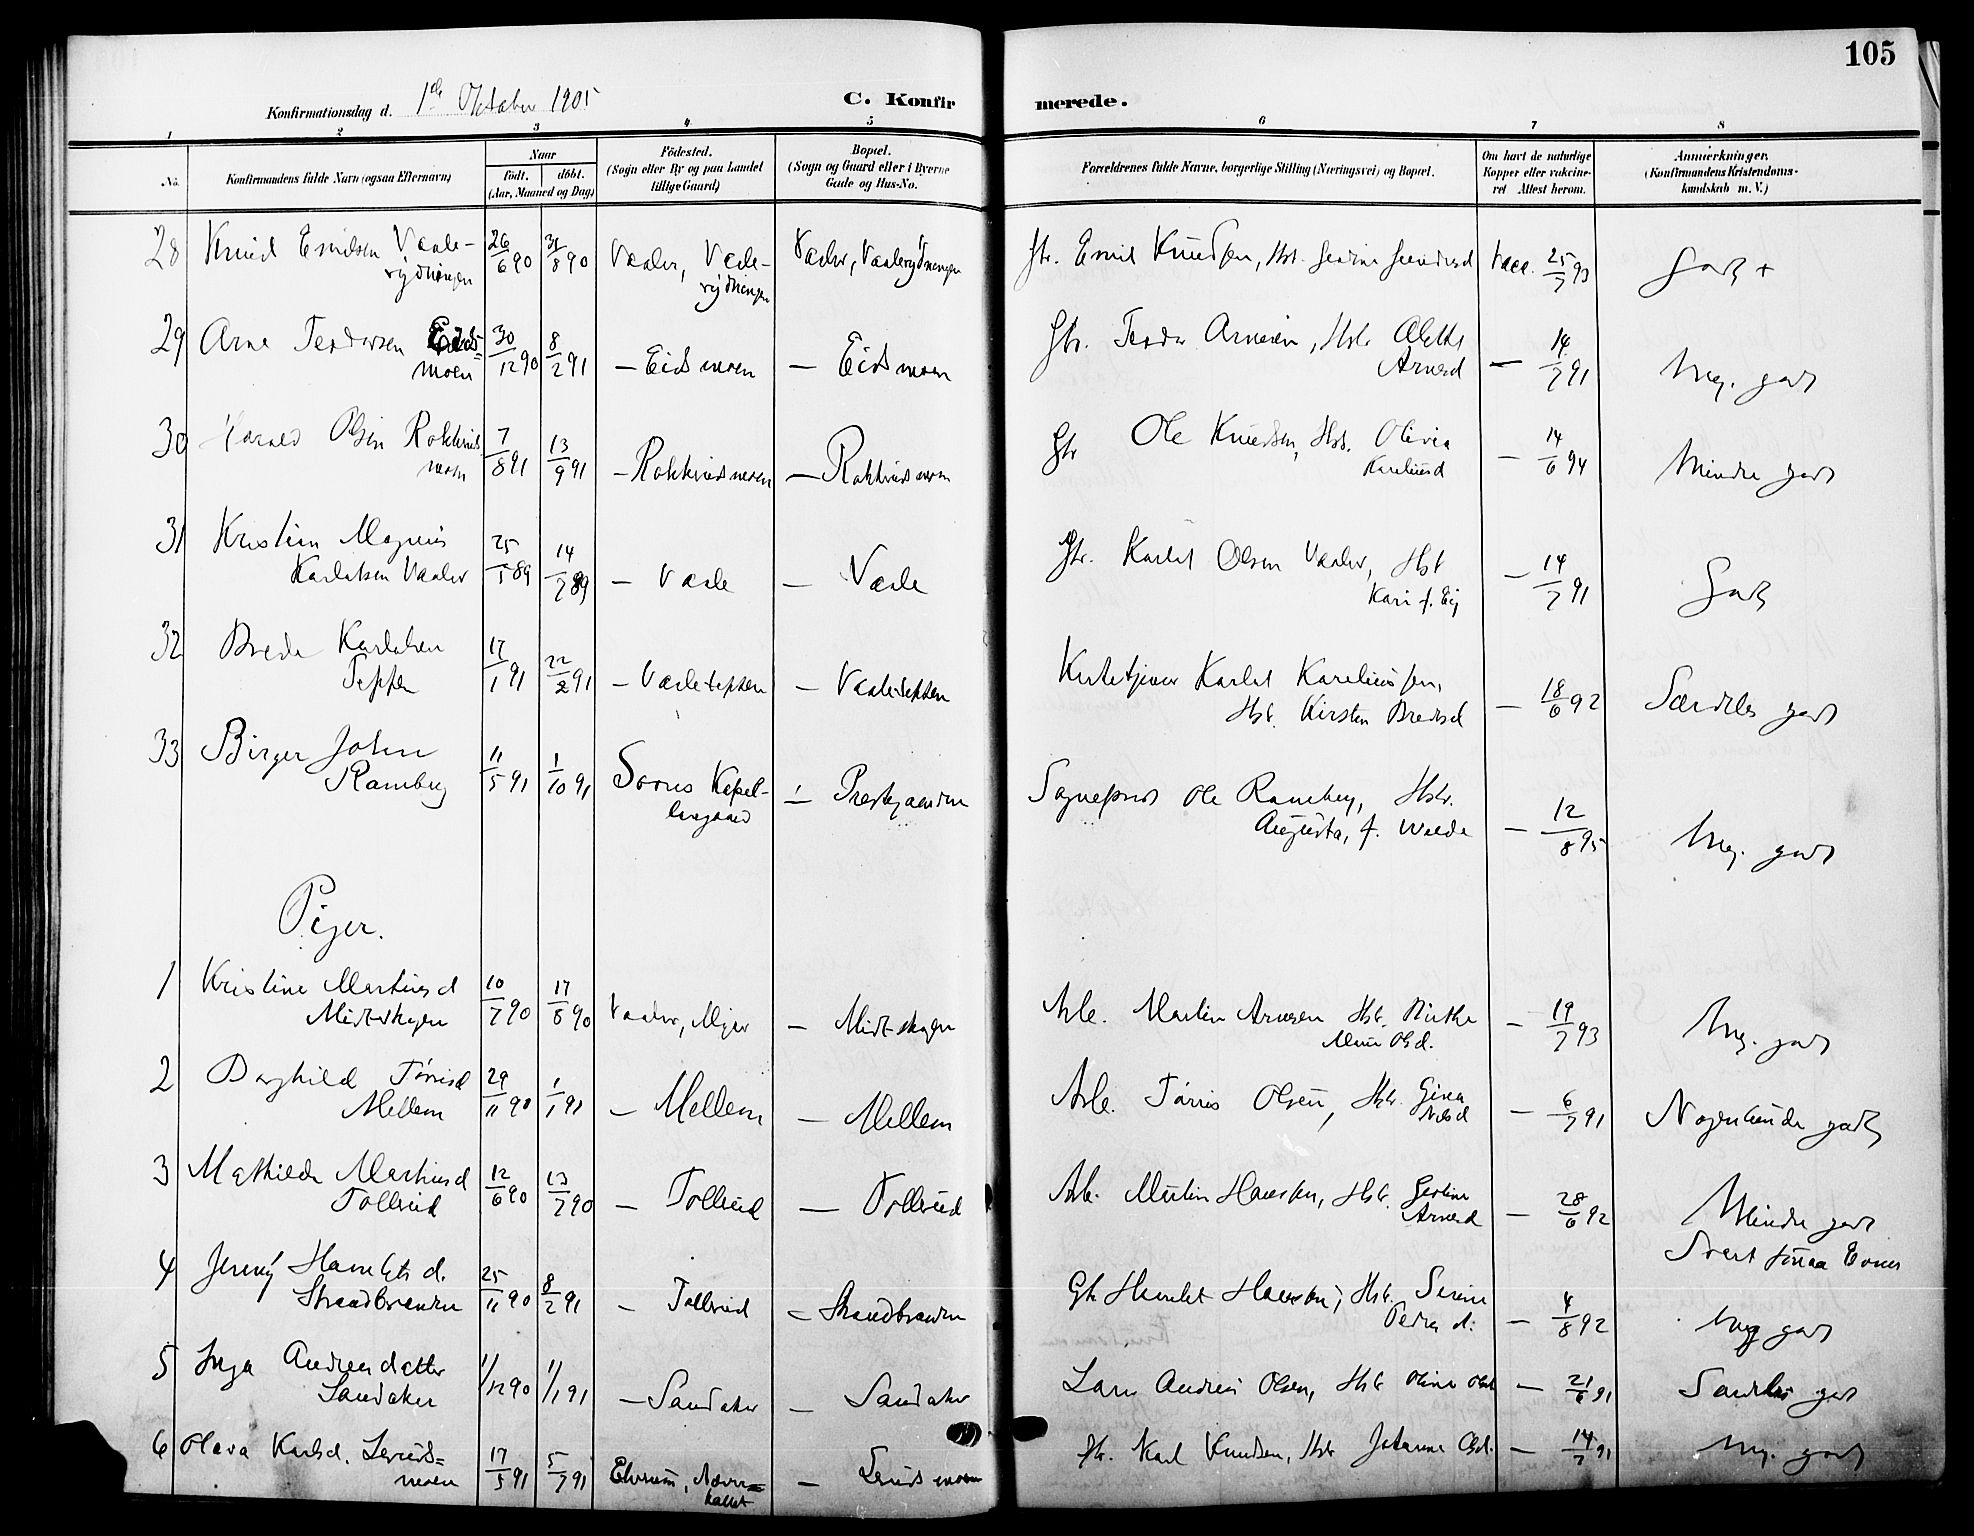 105
Konfirmationsdag d. 1ste Oktober 1905
C. Konfirmerede.
1 2 3 4 5 6 7 8
No.
Konfirmandens fulde Navn (ogsaa Efternavn)
Naar
født. døbt.
(Aar, Maaned og Dag)
Fødested.
(Sogn eller By og paa Landet
tillige Gaard)
Bopæl.
(Sogn og Gaard eller i Byerne
Gade og Hus-No.
Forældrenes fulde Navne, borgerlige Stilling (Næringsvei) og Bopæl.
Om havt de naturlige
Kopper eller vakcine-
ret Attest herom.
Anmerkninger.
(Konfirmandens Kristendoms-
kundskab m. V.)
28 Knud Emilsen Vaale- 26/6 90 31/8 90 Vaaler, Vaale- Vaaler, Vaalerydningen Gbr. Emil Knudsen, Hst. vacc. 25/7 93 Godt +
rydningen rydningen
29 Arne Pedersen Eids- 30/12 90 8/2 91 — Eidsmoen — Eidsmoen Gbr. Peder Arnesen, Hstr — 14/7 91 Meg. godt
moen Arnesd
30 Olsen 7/8 91 13/9 91 Gbr Ole Knudsen, Hst. Olivia — 14/6 94 Mindre godt
moen Kareliusd
31 Kristian Magnus 25/5 89 14/7 89 — Vaale — Vaale Gbr. Karl Olsen Vaaler, Hst — 14/7 91 Godt
Karlsen Vaaler Kari f. Eig
32 Brede Karlsen 17/1 91 22/2 91 — Vaaleteppen — Vaaleteppen Karl Kareliussen, — 18/6 92 Særdeles godt
Teppen Hst. Kirsten Bredesd
33 Birger Johan 11/5 91 1/10 91 Sørums Kapel- — Prestegaarden Sogneprest Ole Ramberg, Hstr. — 12/8 95 Meg. godt
Ramberg langaard Augusta, f. Welde
Piger.
1 Kristine Martinsd 10/7 90 17/8 90 Vaaler, — Midtskogen Arb. Martin Arnesen Hst. Birthe — 19/7 93 Meg. godt
Midtskogen Marie Olsd.
2 Borghild Tørrisd 29/11 90 1/1 91 — Mellem — Mellem Arb. Tørris Olsen, Hstr. Gina — 6/7 91 Nogenlunde godt
Mellem Nilsd
3 Mathilde Martinsd 12/6 90 13/7 90 — Tollerud — Tollerud Arb. Martin Hansen, Hstr. — 28/6 92 Mindre godt
Tollerud Arnesd Svært smaa Evner
4 Jenny Hamletsd. 25/11 90 8/2 91 — Tollerud — Strandbraaten Gbr Hamlet Hansen, Hst. Serine — 4/8 92 Meg godt
Strandbraaten Pedersd.
5 Inga Andreasdatter 11/12 90 11/1 91 — Sandaker — Sandaker Lars Andreas Olsen, Hst Oline Olsd — 21/6 91 Særdeles godt
Sandaker
6 Olava Karlsd. 17/5 91 5/7 91 Elverum, Gbr. Karl Knudsen, Hstr Johanne Olsd. — 14/7 91 Meg. godt
moen kallet